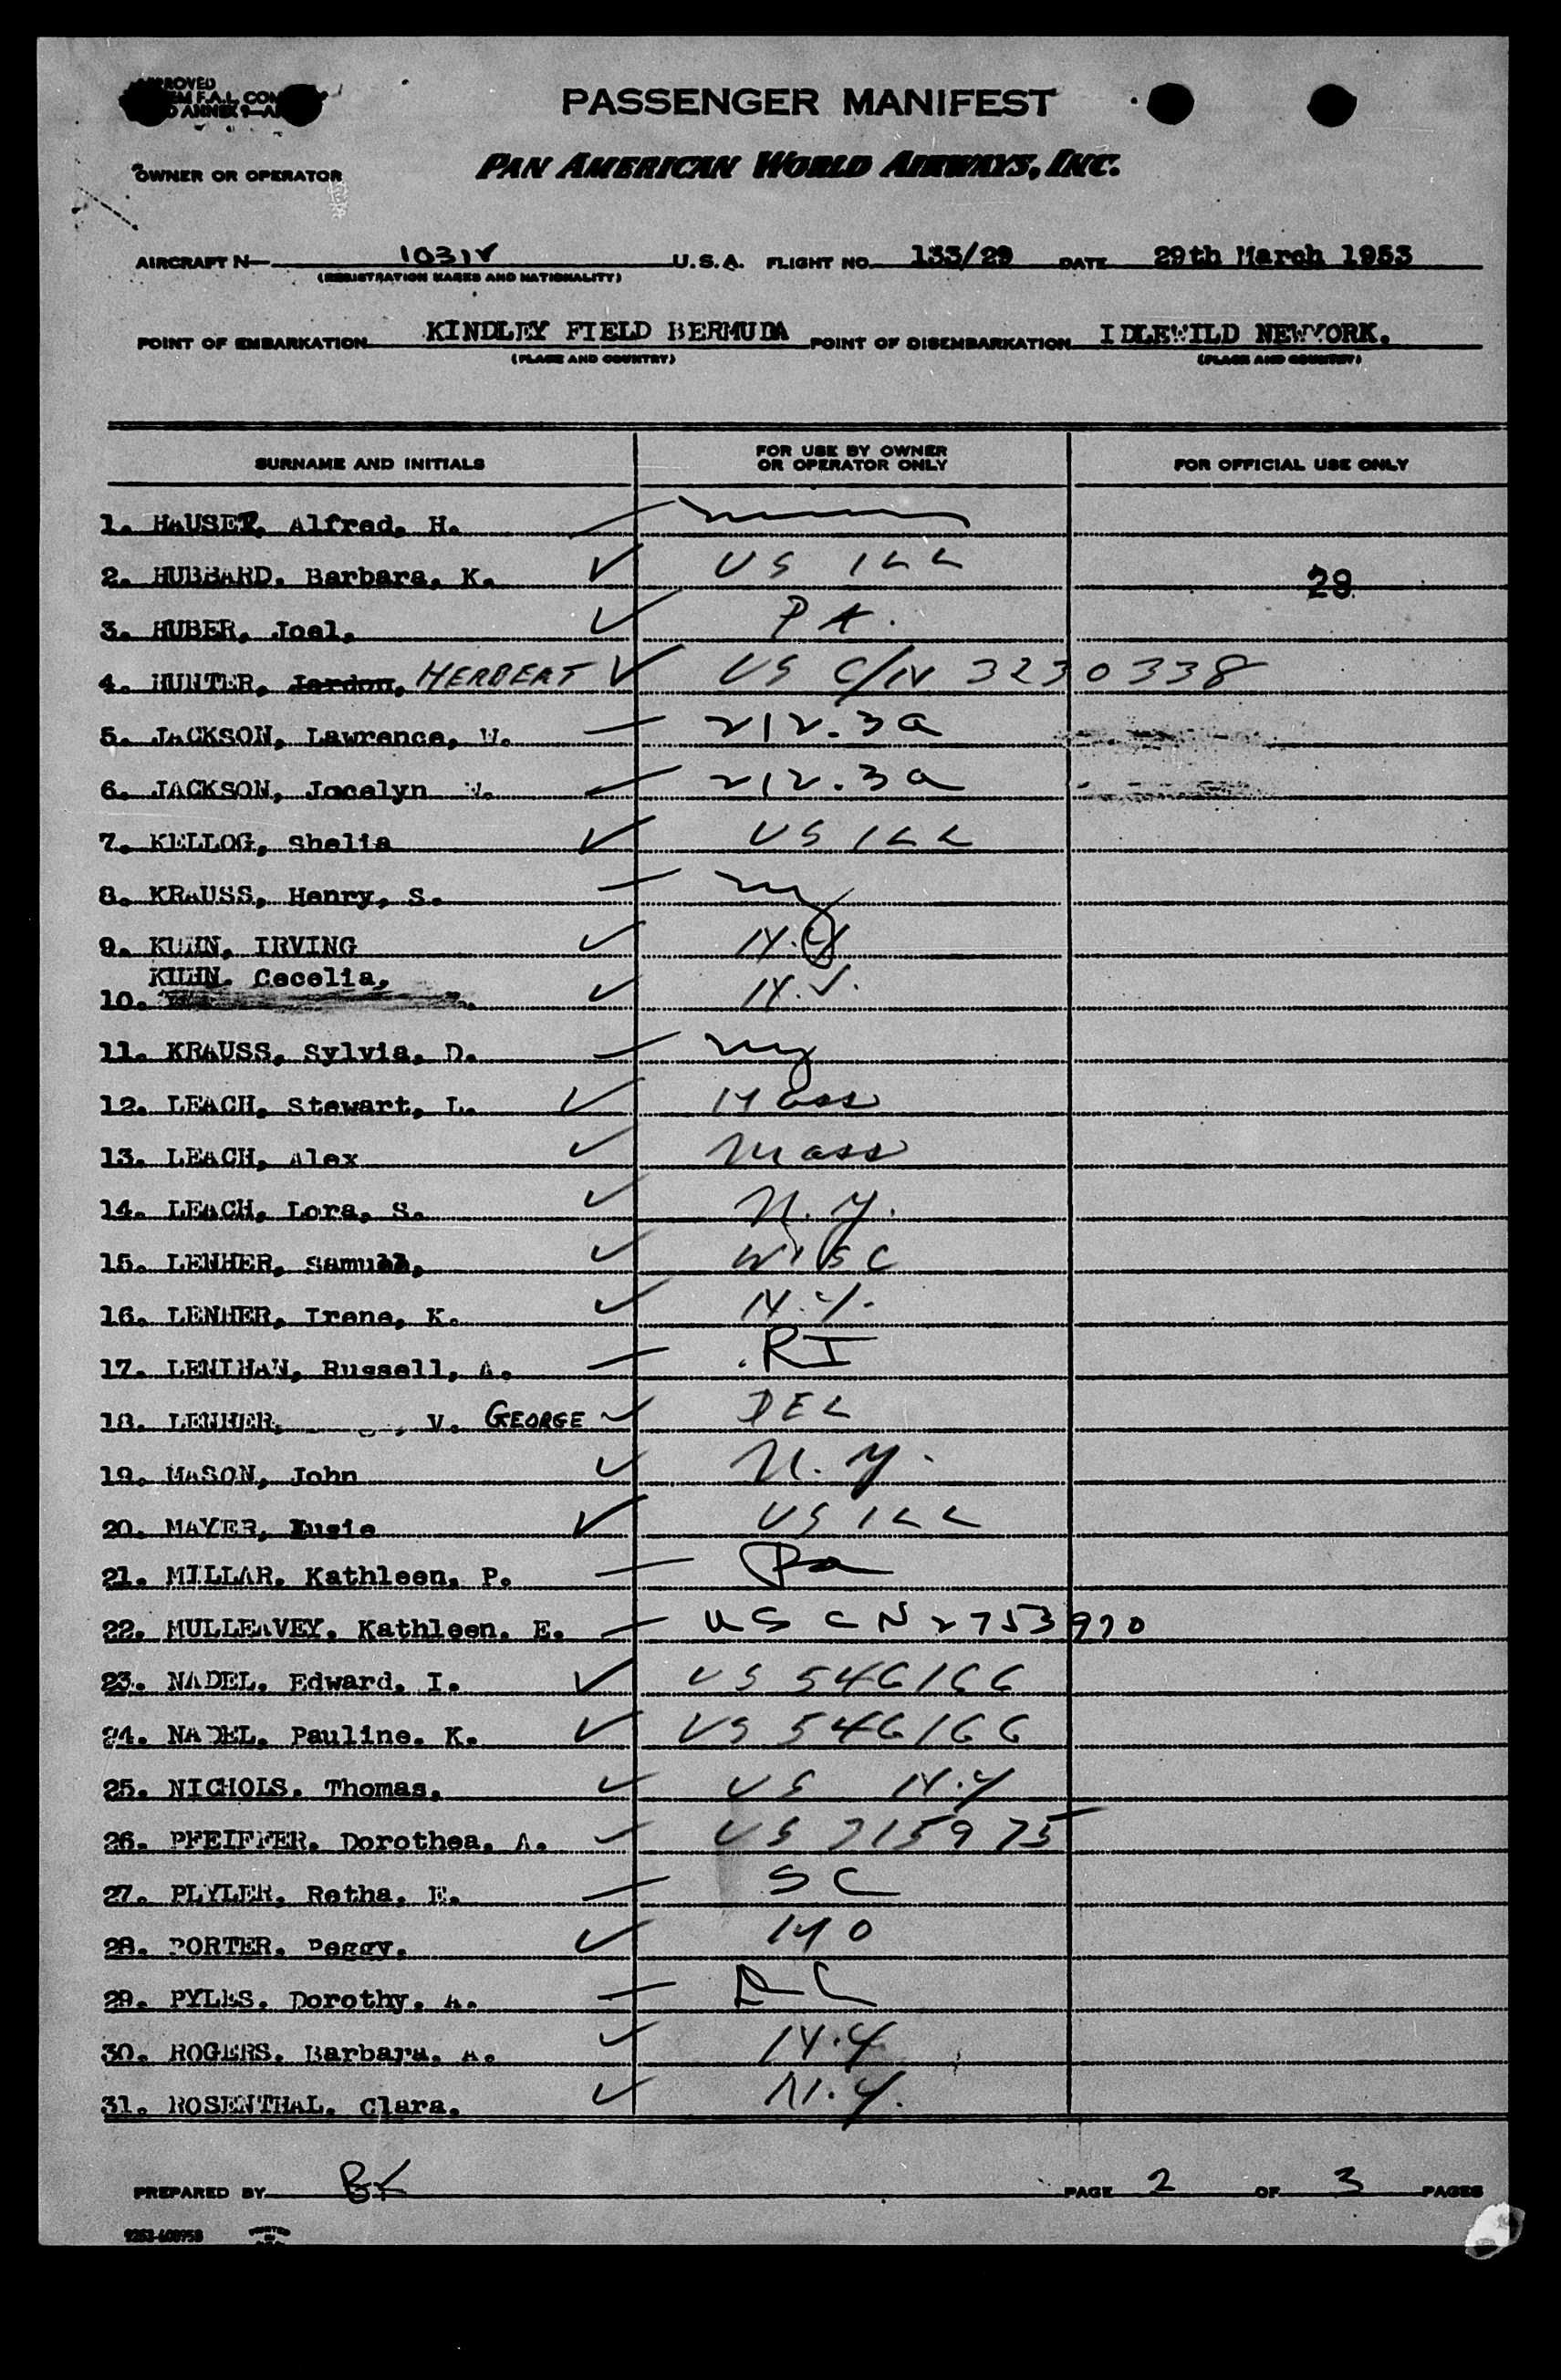 PASSENGER MANIFEST
OWNER OR OPERATOR
PAN AMERICAN WORLD AIRWAYS, INC.
AIRCRAFT N— 1031V U.S.A. FLIGHT NO. 133/29 DATE 29th March 1953
(REGISTRATION MARKS AND NATIONALITY)
POINT OF EMBARKATION KINDLEY FIELD BERMUDA POINT OF DISEMBARKATION IDLEWILD NEWYORK.
(PLACE AND COUNTRY) (PLACE AND COUNTRY)
SURNAME AND INITIALS FOR USE BY OWNER OR OPERATOR ONLY FOR OFFICIAL USE ONLY
1. HAUSET, Alfred, H.
2. HUBBARD, Barbara, K. ✓ US ILL 29
3. HUBER, Joel, ✓ PA.
4. HUNTER, Jordon, HERBERT ✓ US C/N 3230338
5. JACKSON, Lawrence, W. — 212.3a
6. JACKSON, Jocelyn W. — 212.3a
7. KELLOG, Shelia ✓ US ILL
8. KRAUSS, Henry, S. — ny
9. KUHN, IRVING ✓ N.Y
KUHN. Cecelia,
10. ✓ N.J.
11. KRAUSS, Sylvia, D. — ny
12. LEACH, Stewart, L. ✓ Mass
13. LEACH, Alex ✓ Mass
14. LEACH, Lora, S. ✓ N.Y.
15. LENHER, Samuel, ✓ WISC
16. LENHER, Irene, K. ✓ N.Y.
17. LENIHAN, Russell, A. — RI
18. LENHER, V. GEORGE ✓ DEL
19. MASON, John ✓ N.Y.
20. MAYER, Lusie ✓ US ILL
21. MILLAR. Kathleen, P. — Pa
22. MULLEAVEY. Kathleen. E. — US CN 2753970
23. NADEL. Edward. I. ✓ US 546166
24. NADEL. Pauline. K. ✓ US 546166
25. NICHOLS. Thomas. ✓ US N.Y
26. PFEIFFER. Dorothea. A. ✓ US 715975
27. PLYLER. Retha. E. — SC
28. PORTER. Peggy. ✓ MO
29. PYLES. Dorothy. A. — DC
30. ROGERS. Barbara. A. ✓ N.Y
31. ROSENTHAL. Clara. ✓ N.Y.
PREPARED BY BK PAGE 2 OF 3 PAGES